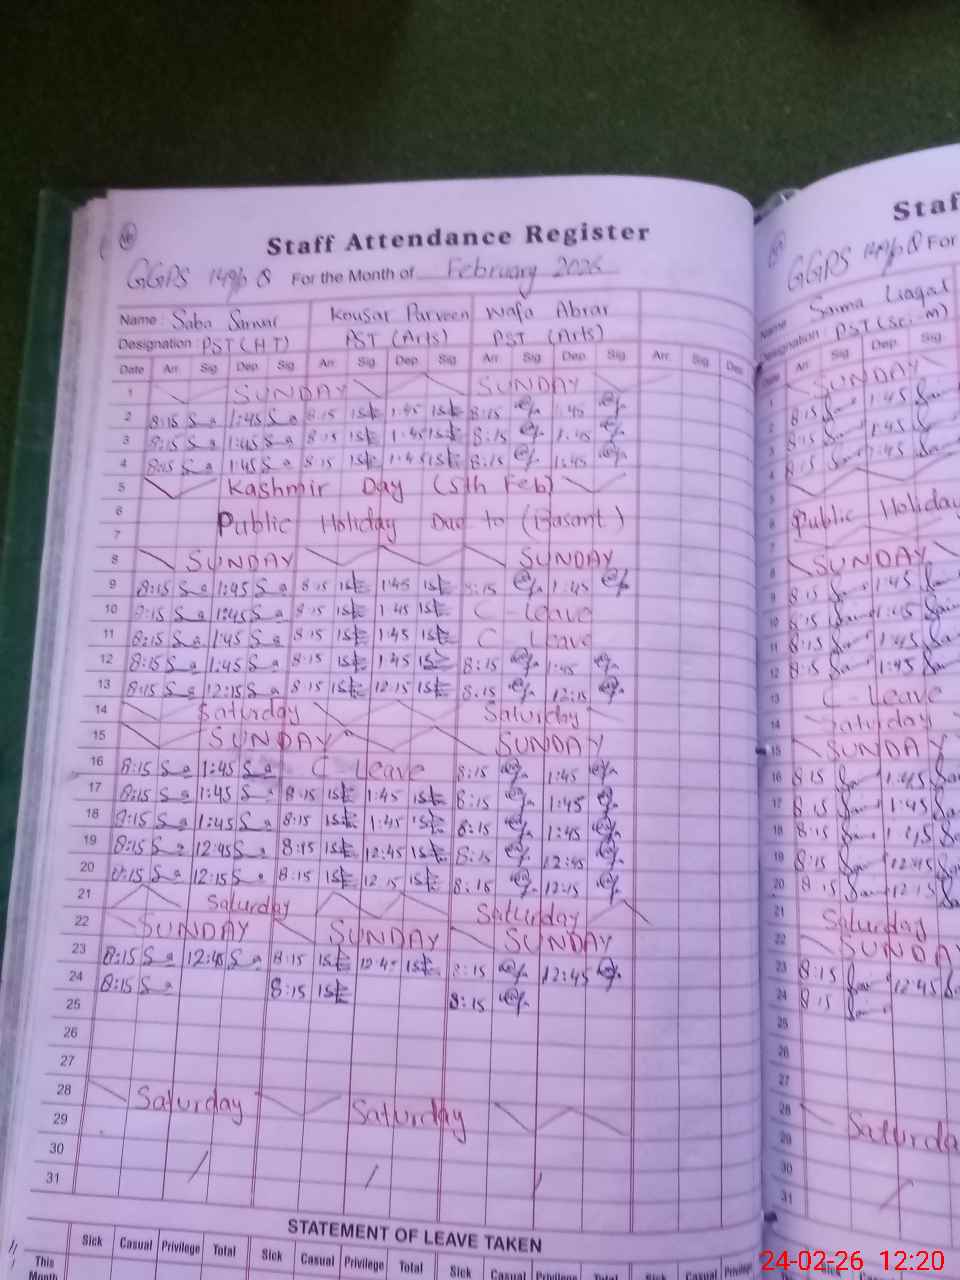 Staff Attendance Register
GGPS 149/6 R For the Month of February 2026
Name : Saba Sarwar Kousar Parveen Wafa Abrar
Designation PST (H T) PST (Arts) PST (Arts)
Date Arr. Sig Dep. Sig Arr. Sig Dep. Sig Arr. Sig Dep. Sig Arr. Sig Dep.
1 SUNDAY SUNDAY
2 8:15 1:45 8:15 1:45 8:15 1:45
3 8:15 1:45 8:15 1:45 8:15 1:45
4 8:15 1:45 8:15 1:45 8:15 1:45
5 Kashmir Day (5th Feb)
6
7 Public Holiday Due to (Basant)
8 SUNDAY SUNDAY
9 8:15 1:45 8:15 1:45 8:15 1:45
10 8:15 1:45 8:15 1:45 C - Leave
11 8:15 1:45 8:15 1:45 C - Leave
12 8:15 1:45 8:15 1:45 8:15 1:45
13 8:15 12:15 8:15 12:15 8:15 12:15
14 Saturday Saturday
15 SUNDAY SUNDAY
16 8:15 1:45 C Leave 8:15 1:45
17 8:15 1:45 8:15 1:45 8:15 1:45
18 8:15 1:45 8:15 1:45 8:15 1:45
19 8:15 12:45 8:15 12:45 8:15 12:45
20 8:15 12:15 8:15 12:15 8:15 12:15
21 Saturday Saturday
22 SUNDAY SUNDAY SUNDAY
23 8:15 12:45 8:15 12:45 8:15 12:45
24 8:15 8:15 8:15
25
26
27
28 Saturday Saturday
29
30
31
STATEMENT OF LEAVE TAKEN
Sick Casual Privilege Total Sick Casual Privilege Total Sick Casual Privilege Total Sick Casual
This
Month
Staf
GGPS 149/6 R For
Name
Designation PST (Sc. M)
Date Arr. Sig Dep. Sig
1 SUNDAY
2 8:15 1:45
3 8:15 1:45
4 8:15 1:45
5
6 Public Holiday
7
8 SUNDAY
9 8:15 1:45
10 8:15 1:45
11 8:15 1:45
12 8:15 1:45
13 C - Leave
14 Saturday
15 SUNDAY
16 8:15 1:45
17 8:15 1:45
18 8:15 1:45
19 8:15 12:45
20 8:15 12:15
21 Saturday
22 SUNDAY
23 8:15 12:45
24 8:15
25
26
27
28 Saturda
29
30
31
24-02-26 12:20